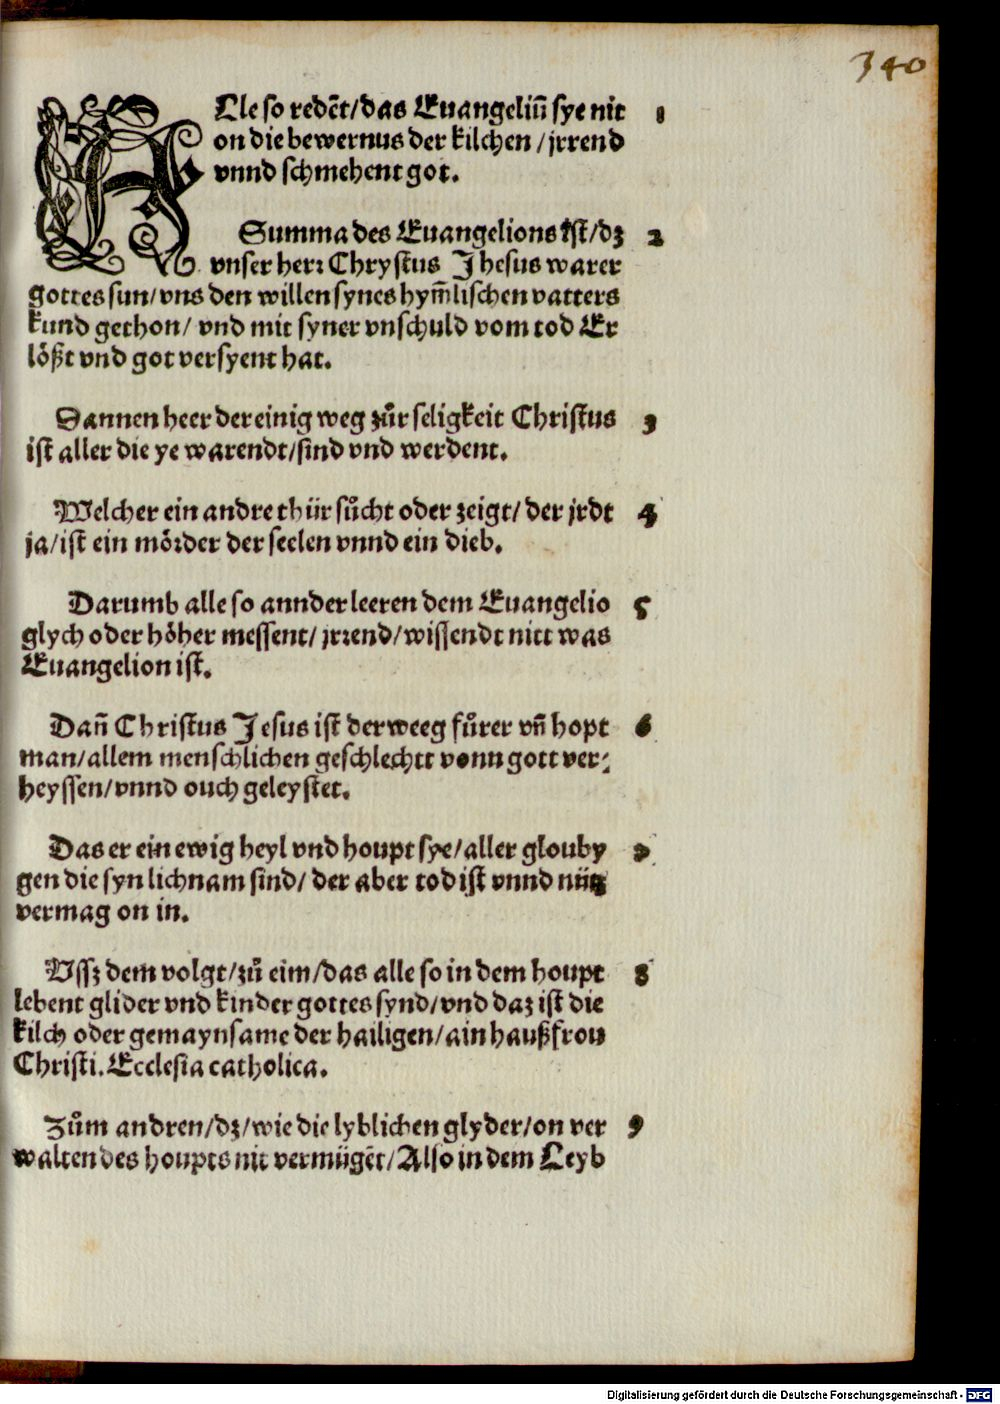 340
ALle so redēt/das Euangeliū sye nit 1
on die bewernus der kilchen/jrrend
vnnd schmehent got.
Summa des Euangelions ist/dz 2
vnser herr Chrystus Jhesus warer
gottes sun/vns den willen synes hym̄lischen vatters
kund gethon/ vnd mit syner vnschuld vom tod Er
lößt vnd got versyent hat.
Dannen heer der einig weg zůr seligkeit Christus 3
ist aller die ye warendt/sind vnd werdent.
Welcher ein andre thür sůcht oder zeigt/ der jrdt 4
ja/ist ein mörder der seelen vnnd ein dieb.
Darumb alle so annder leeren dem Euangelio 5
glych oder höher messent/ jrrend/wissendt nitt was
Euangelion ist.
Dañ Christus Jesus ist der weeg fůrer vñ hopt 6
man/allem menschlichen geschlechtt vonn gott ver⸗
heyssen/vnnd ouch geleystet.
Das er ein ewig heyl vnd houpt sye/allerglouby 7
gen die syn lichnam sind/ der aber tod ist vnnd nütz
vermag on in.
Vssz dem volgt/zů eim/das alle so in dem houpt 8
lebent glider vnd kinder gottes synd/vnd daz ist die
kilch oder gemaynsame der hailigen/ain haußfrou
Christi. Ecclesia catholica.
Zům andren/dz/wie die lyblichen glyder/on ver 9
walten des houpts nit vermügēt/Also in dem Leyb
Digitalisierung gefördert durch die Deutsche Forschungsgemeinschaft - DFG